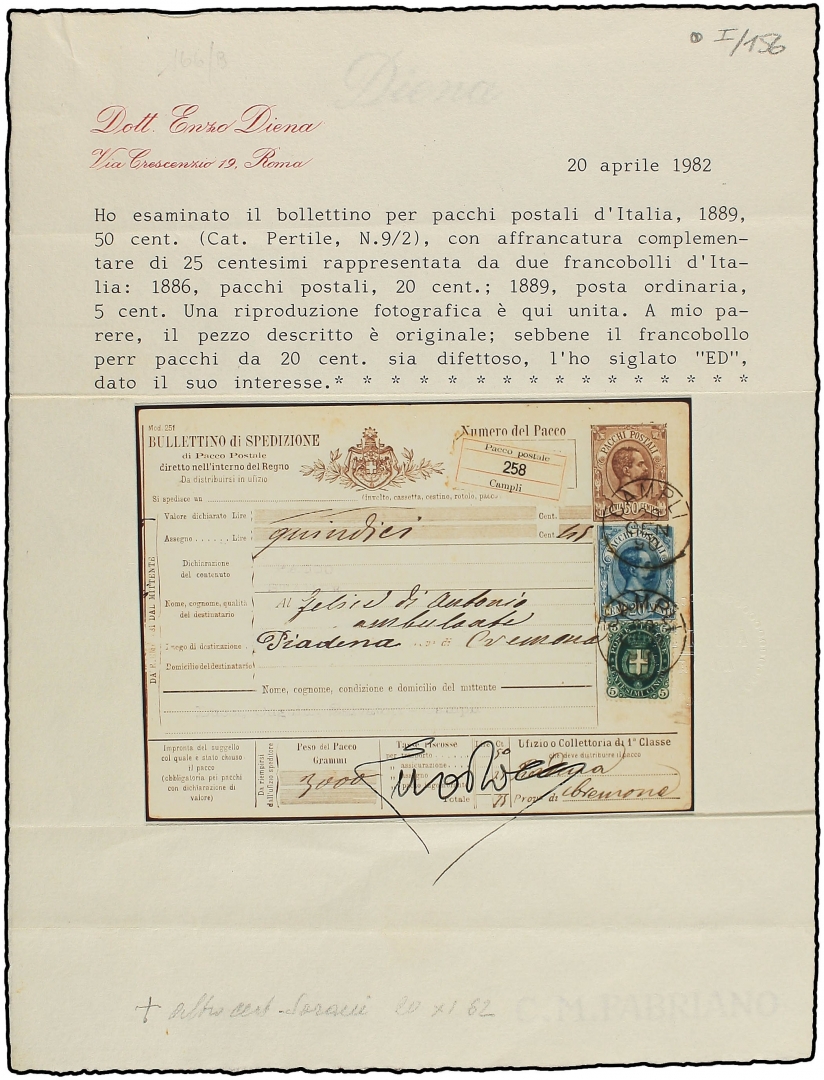 I/156
166/B
Diena
Dott. Enzo Diena
Via Crescenzio 19, Roma
20 aprile 1982
Ho esaminato il bollettino per pacchi postali d'Italia, 1889,
50 cent. (Cat. Pertile, N.9/2), con affrancatura complemen-
tare di 25 centesimi rappresentata da due francobolli d'Ita-
lia: 1886, pacchi postali, 20 cent.; 1889, posta ordinaria,
5 cent. Una riproduzione fotografica è qui unita. A mio pa-
rere, il pezzo descritto è originale; sebbene il francobollo
perr pacchi da 20 cent. sia difettoso, l'ho siglato "ED",
dato il suo interesse.* * * * * * * * * * * * * * *
Mod. 251
BULLETTINO di SPEDIZIONE
di Pacco Postale
diretto nell'interno del Regno
Da distribuirsi in ufizio
Numero del Pacco
Pacco postale
258
Campli
PACCHI POSTALI
Si spedisce un (involto, cassetta, cestino, rotolo, pacc
Valore dichiarato Lire Cent.
Assegno ...... Lire quindici Cent. 45
PACCHI POSTALI
Dichiarazione
del contenuto
Nome, cognome, qualità
del destinatario
Al felice di Antonio
ambulante
Luogo di destinazione Piadena di Cremona
Domicilio del destinatario
DAL MITTENTE
5 5
Nome, cognome, condizione e domicilio del mittente
Impronta del suggello
col quale è stato chiuso
il pacco
(obbligatoria pei pacchi
con dichiarazione di
valore)
Da riempirsi
dall'ufizio speditore
Peso del Pacco
Grammi
3000
Tasse riscosse
assicurazione
Totale 75
Ufizio o Collettoria di 1ª Classe
che deve distribuire il pacco
Prov. di Cremona
+ altro cert. Sorani 20 XI 82
C.M.FABRIANO